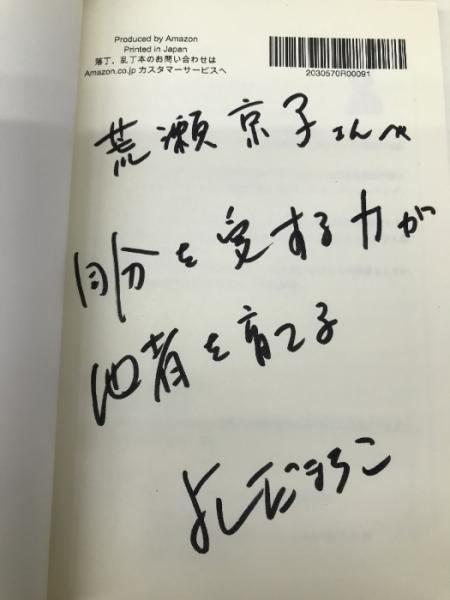 Produced by Amazon
Printed in Japan
落丁、乱丁本のお問い合わせは
Amazon.co.jp カスタマーサービスへ
2030570R00091
荒瀬京子さんへ
自分を愛する力が
他者を育てる